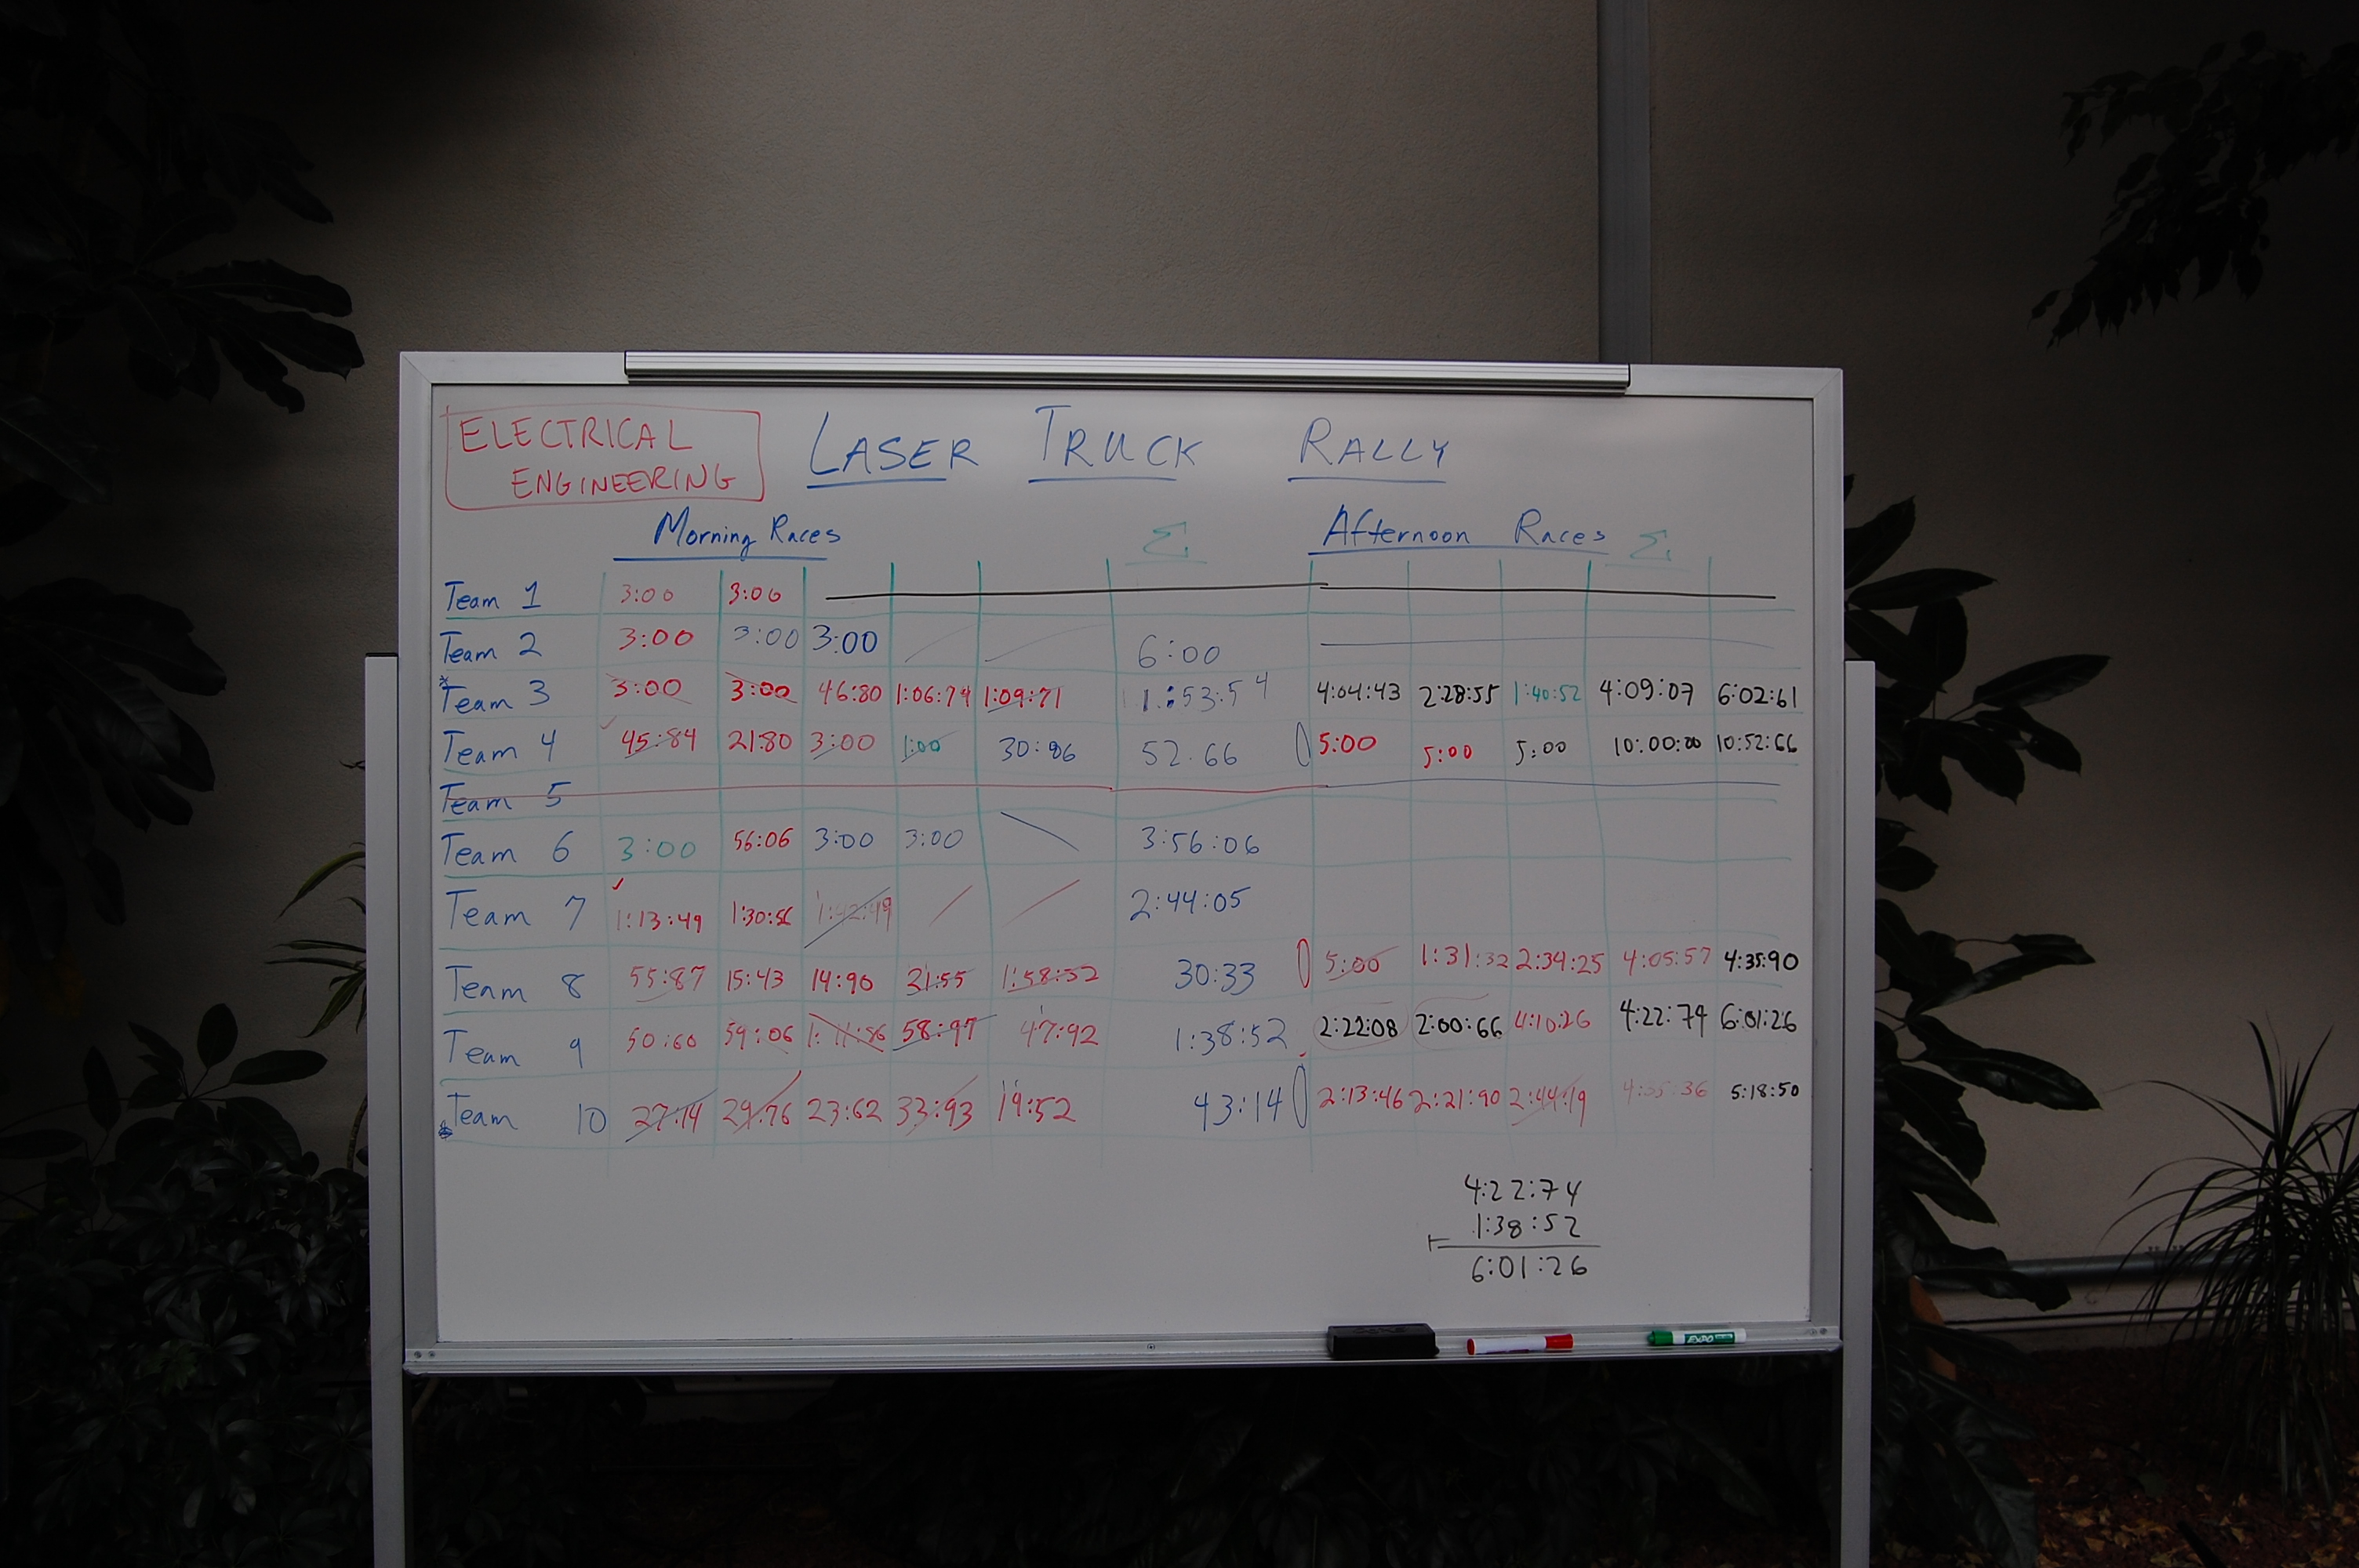 ELECTRICAL
ENGINEERING
LASER TRUCK RALLY
Morning Races Σ Afternoon Races Σ
Team 1 3:00 3:00
Team 2 3:00 3:00 3:00 6:00
Team 3 3:00 3:00 46:80 1:06:74 1:09:71 1:53:54 4:04:43 2:28:55 1:40:52 4:09:07 6:02:61
Team 4 45:84 21:80 3:00 1:00 30:86 52.66 5:00 5:00 5:00 10:00:00 10:52:66
Team 5
Team 6 3:00 56:06 3:00 3:00 3:56:06
Team 7 1:13:49 1:30:56 1:42:49 2:44:05
Team 8 55:87 15:43 14:90 21:55 1:58:52 30:33 5:00 1:31:32 2:34:25 4:05:57 4:35:90
Team 9 50:60 59:06 58:97 47:92 1:38:52 2:22:08 2:00:66 4:10:26 4:22:74 6:01:26
Team 10 27:14 29:76 23:62 33:93 19:52 43:14 2:13:46 2:21:90 2:44:19 4:35:36 5:18:50
4:22:74
1:38:52
+
6:01:26
EXPO